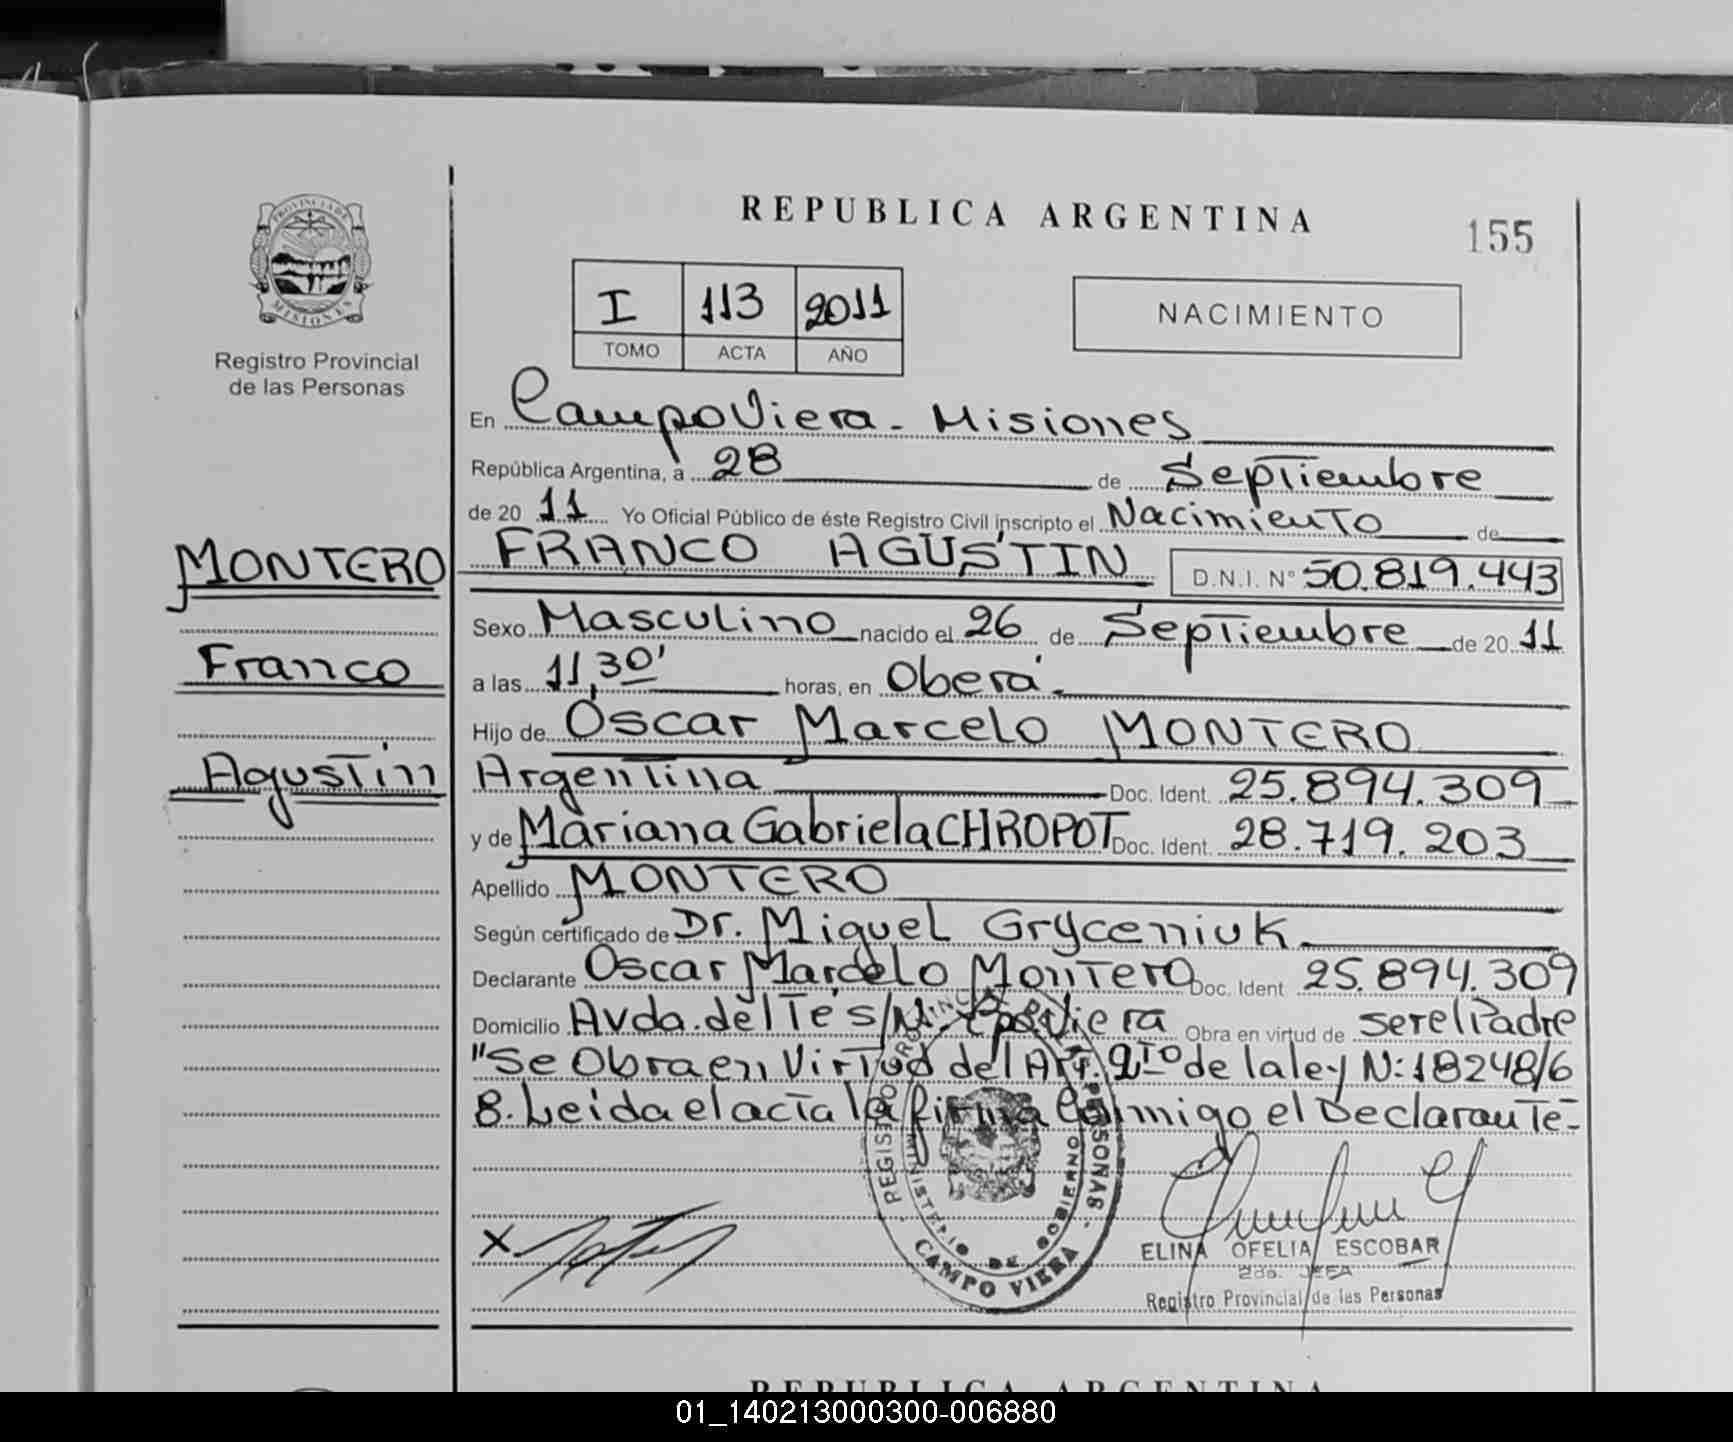 REPUBLICA ARGENTINA
155
PROVINCIA DE
MISIONES
Registro Provincial
de las Personas
I 113 2011
TOMO ACTA AÑO
NACIMIENTO
En Campo Viera - Misiones
República Argentina, a 28 de Septiembre
de 20 11 Yo Oficial Público de éste Registro Civil inscripto el Nacimiento de
MONTERO
Franco
Agustin
FRANCO AGUSTIN D.N.I. N° 50.819.443
Sexo Masculino nacido el 26 de Septiembre de 20 11
a las 11,30' horas, en Oberá.
Hijo de Oscar Marcelo MONTERO
Argentina Doc. Ident. 25.894.309
y de Mariana Gabriela CHROPOT Doc. Ident. 28.719.203
Apellido MONTERO
Según certificado de Dr. Miguel Gryceniuk
Declarante Oscar Marcelo Montero Doc. Ident 25.894.309
Domicilio Avda. del Té s/N. Cpo Viera Obra en virtud de ser el Padre
"Se Obra en Virtud del Art. 2to de la ley N: 18248/6
8. Leida el acta la firma Conmigo el Declarante-
REGISTRO PROVINCIAL DE LAS PERSONAS
MINISTERIO DE GOBIERNO
CAMPO VIERA
X
ELINA OFELIA ESCOBAR
2da. JEFA
Registro Provincial de las Personas
REPUBLICA ARGENTINA
01_140213000300-006880